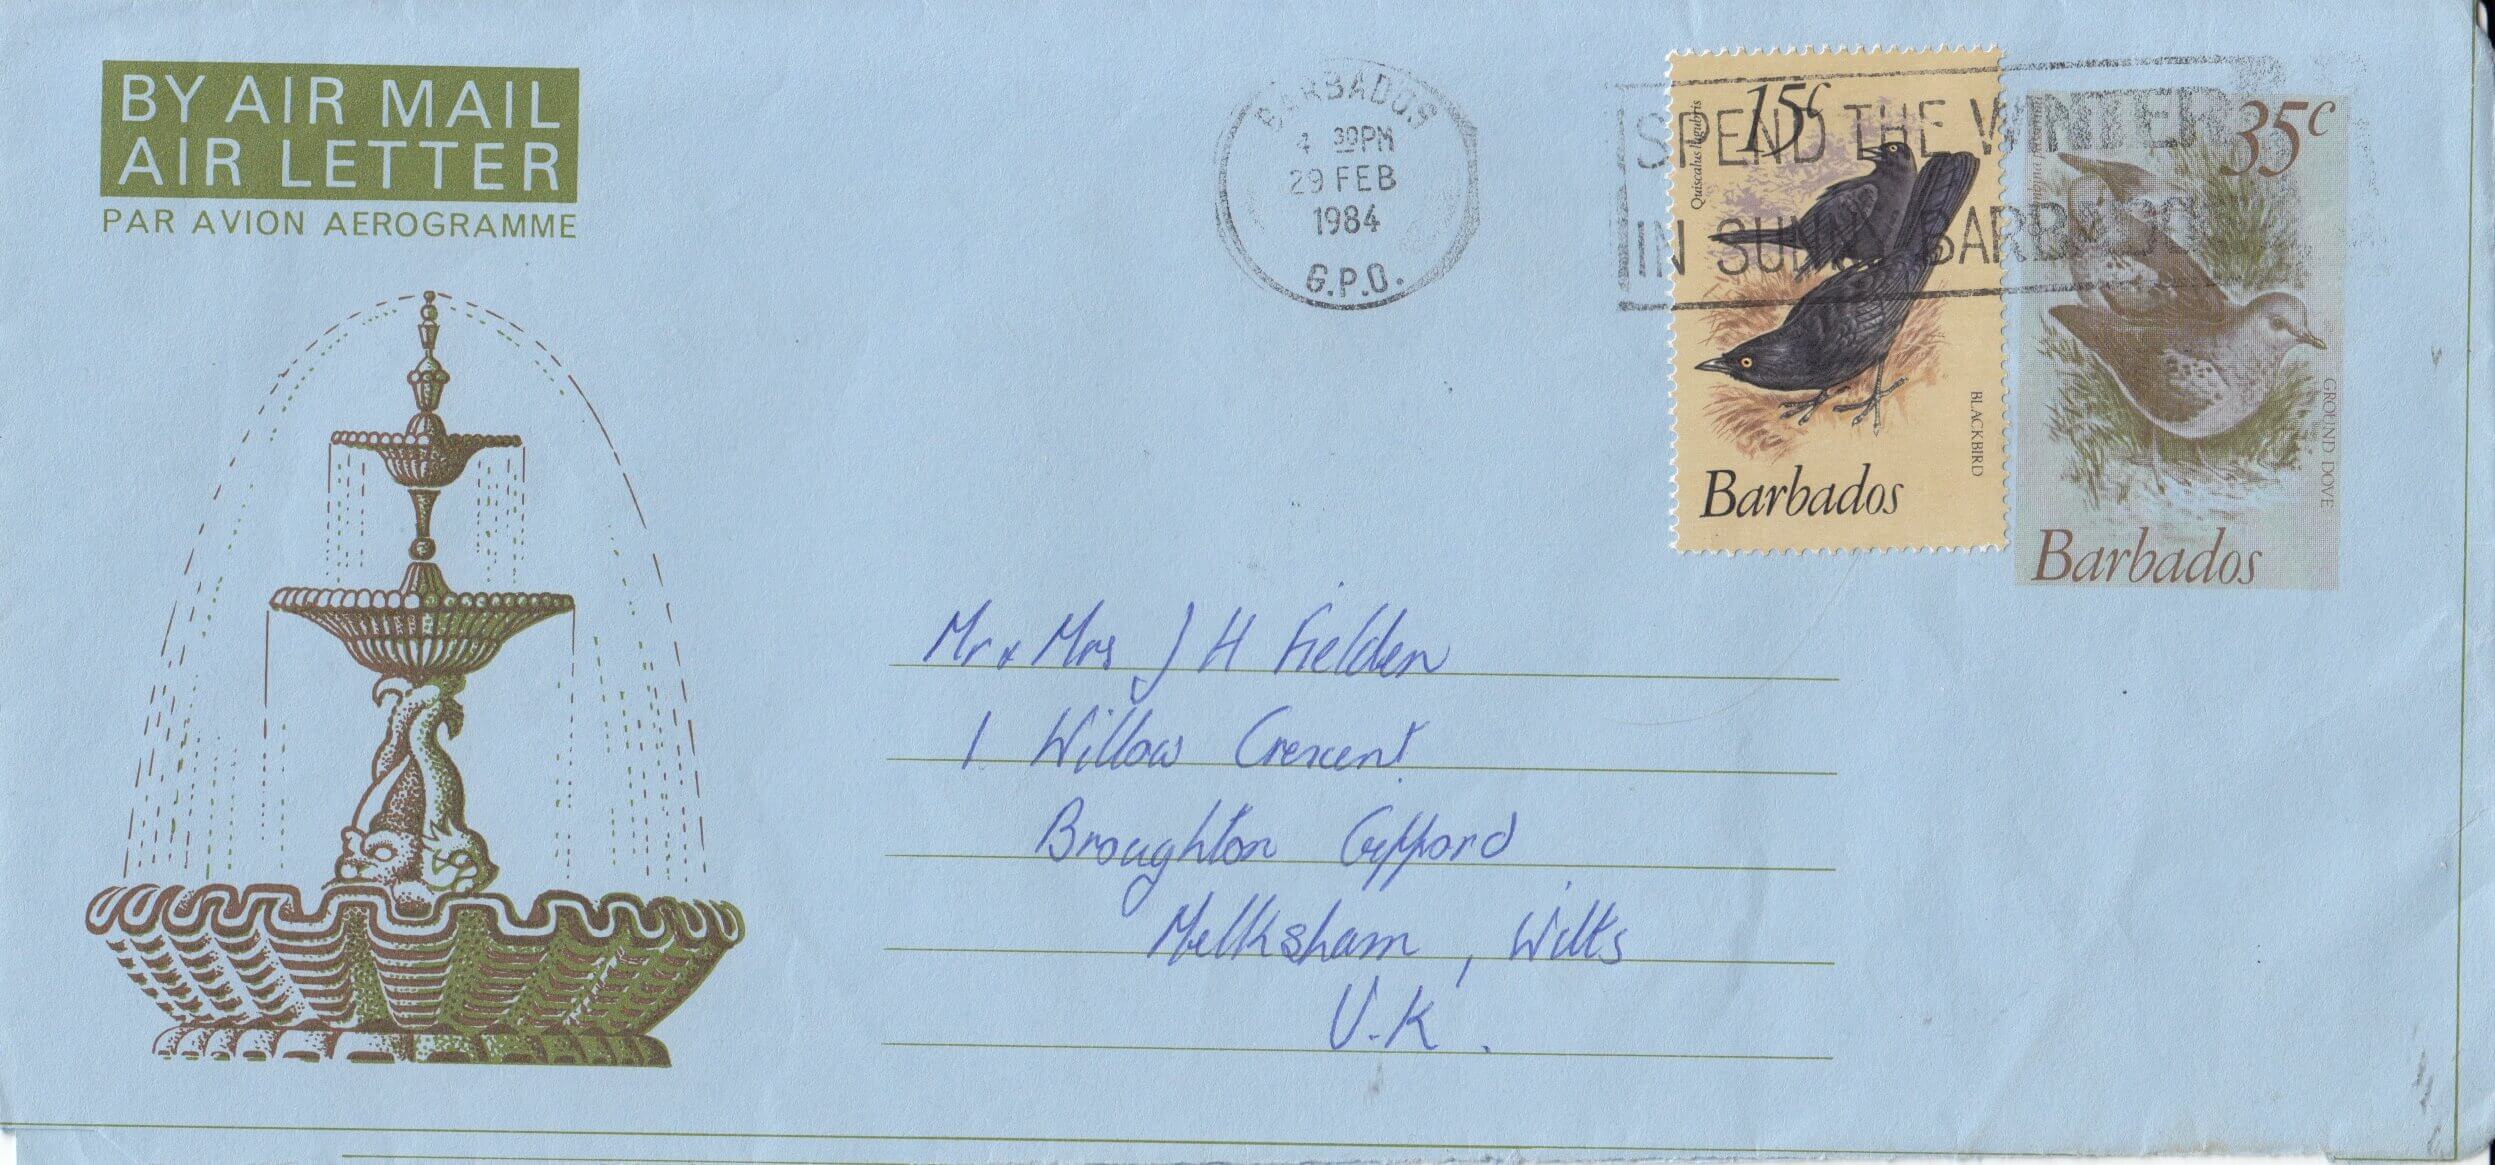 BY AIR MAIL
AIR LETTER
PAR AVION AEROGRAMME
BARBADOS
4 30PM
29 FEB
1984
G.P.O.
SPEND THE WINTER
IN SUNNY BARBADOS
15c
Quiscalus lugubris
BLACKBIRD
Barbados
35c
GROUND DOVE
Barbados
Mr & Mrs J H Fielden
1 Willow Crescent
Broughton Gifford
Melksham, Wilts
U.K.